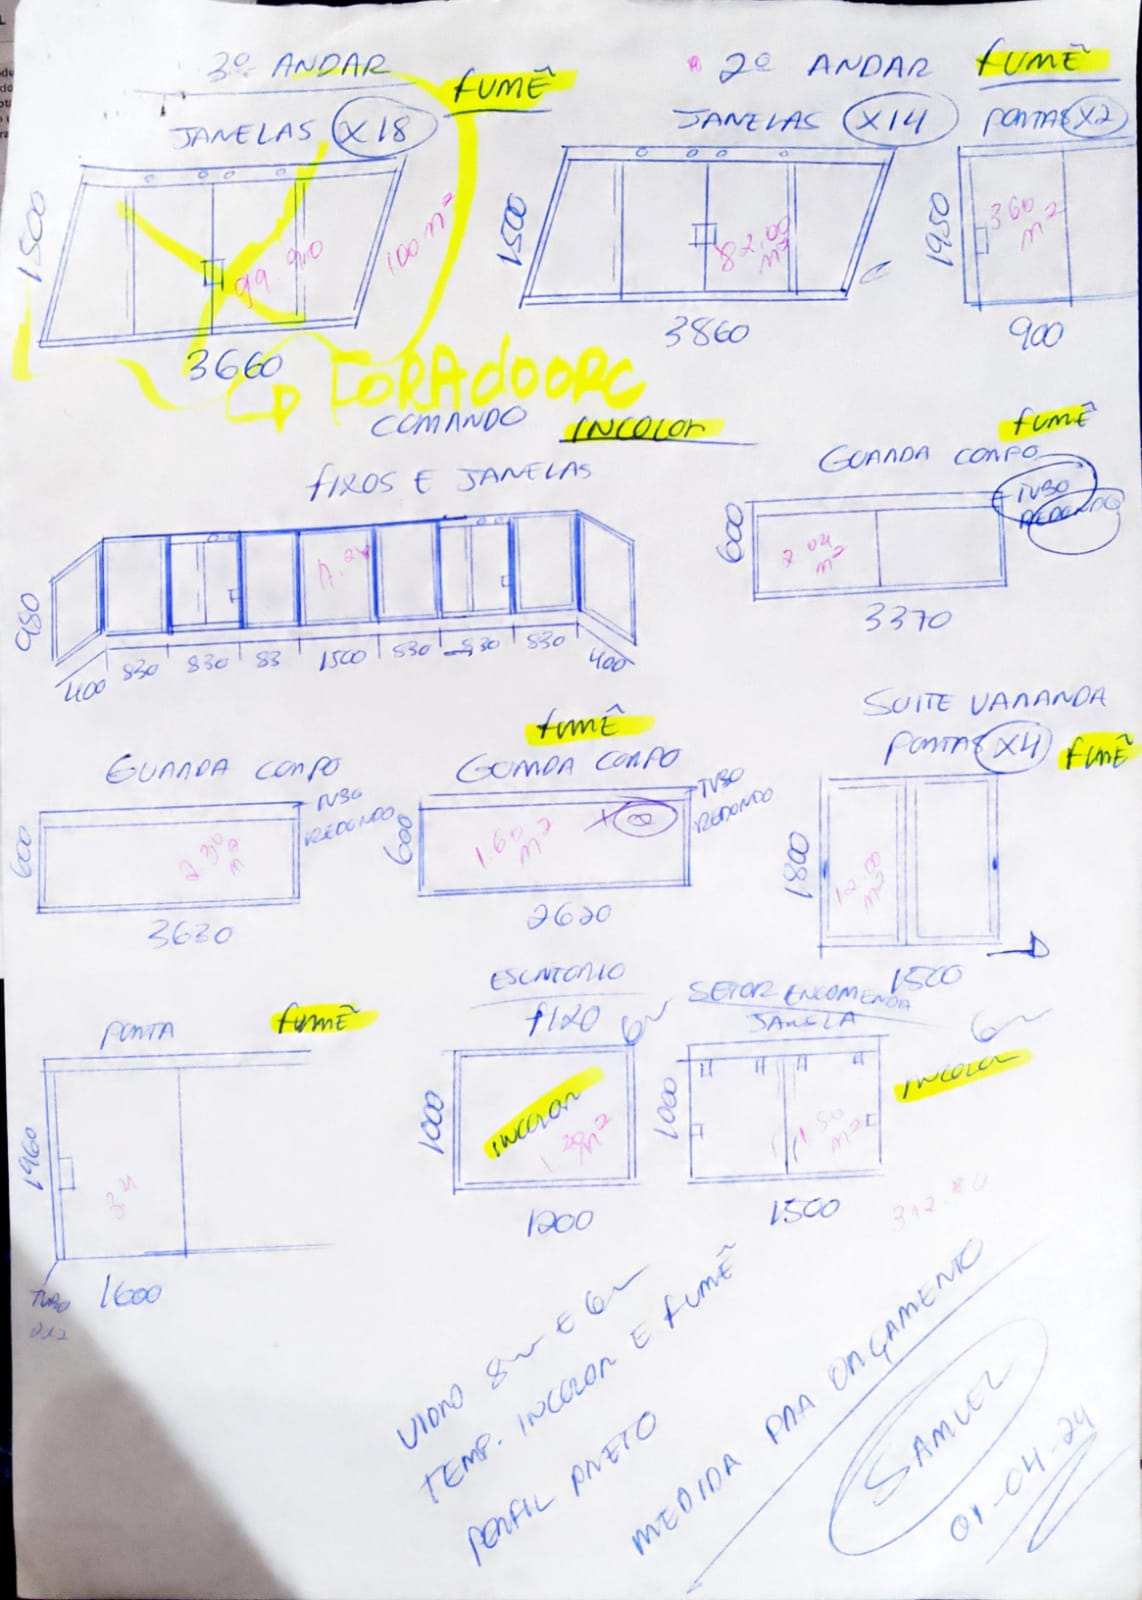 3º ANDAR
FUMÊ
JANELAS X18
1500
99.90
100 m²
3660
FORA do ORC
2º ANDAR
FUMÊ
JANELAS X14
PORTAS X2
1500
82.00
m²
3860
1950
360
m²
900
COMANDO INCOLOR
FIXOS E JANELAS
980
400 830 830 83 1500 830 830 830 400
FUMÊ
GUARDA CORPO
TUBO
REDONDO
600
2.04
m²
3370
GUARDA CORPO
TUBO
REDONDO
600
2.30
m²
3630
FUMÊ
GUARDA CORPO
TUBO
REDONDO
600
1.60
m²
2620
SUITE VARANDA
PORTAS X4
FUMÊ
1800
12.00
m²
1500
PORTA
FUMÊ
1960
1600
TUBO
2x2
ESCRITORIO
FIXO
6m
1000
INCOLOR
1.20m²
1200
SETOR ENCOMENDA
JANELA
6m
INCOLOR
1000
1.50
m²
1500
VIDRO 8m E 6m
TEMP. INCOLOR E FUMÊ
PERFIL PRETO
MEDIDA PRA ORÇAMENTO
SAMUEL
01-04-24